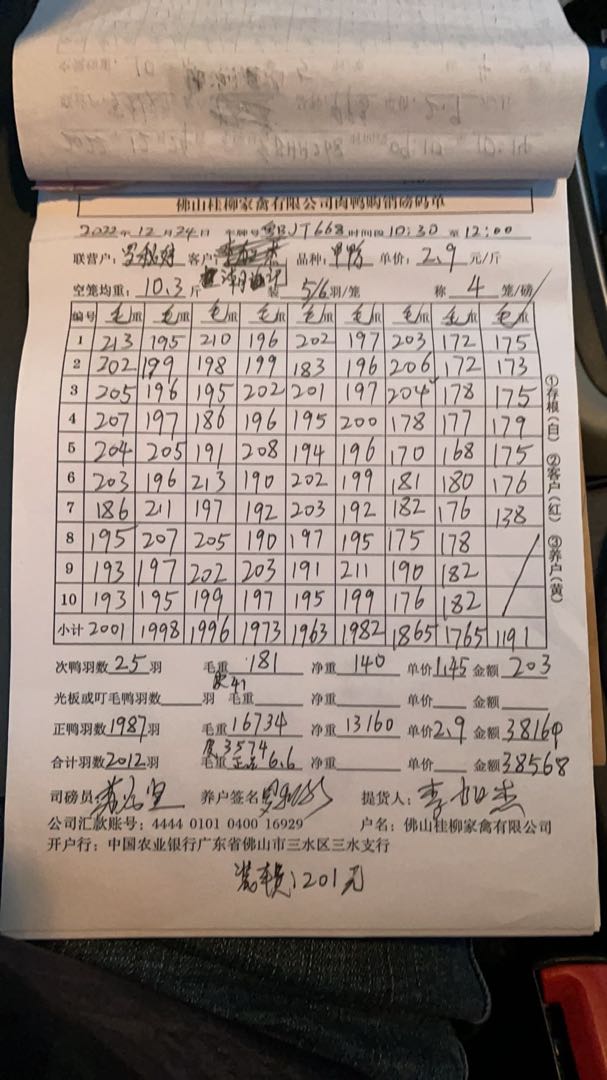 佛山桂柳家禽有限公司肉鸭购销磅码单
2022年12月24日 车牌号 粤BJT668 时间段 10:30 至 12:00
联营户: 客户: 品种: 单价: 2.9 元/斤
空笼均重: 10.3 斤 装 5/6 羽/笼 称 4 笼/磅
编号 毛重 毛重 毛重 毛重 毛重 毛重 毛重 毛重 毛重
1 213 195 210 196 202 197 203 172 175
2 202 199 198 199 183 196 206 172 173
3 205 196 195 202 201 197 204 178 175
4 207 197 186 196 195 200 178 177 179
5 204 205 191 208 194 196 170 168 175
6 203 196 213 190 202 199 181 180 176
7 186 211 197 192 203 192 182 176 138
8 195 207 205 190 197 195 175 178
9 193 197 202 203 191 211 190 182
10 193 195 199 197 195 199 176 182
小计 2001 1998 1996 1973 1963 1982 1865 1765 1191
①存根(白) ②客户(红) ③养户(黄)
次鸭羽数 25 羽 毛重 181 净重 140 单价 1.45 金额 203
皮41
光板或叮毛鸭羽数 羽 毛重 净重 单价 金额
正鸭羽数 1987 羽 毛重 16734 净重 13160 单价 2.9 金额 38164
皮3574
合计羽数 2012 羽 毛重 6.6 净重 单价 金额 38568
司磅员 养户签名 提货人: 李
公司汇款账号: 4444 0101 0400 16929 户名: 佛山桂柳家禽有限公司
开户行: 中国农业银行广东省佛山市三水区三水支行
装车费: 201元